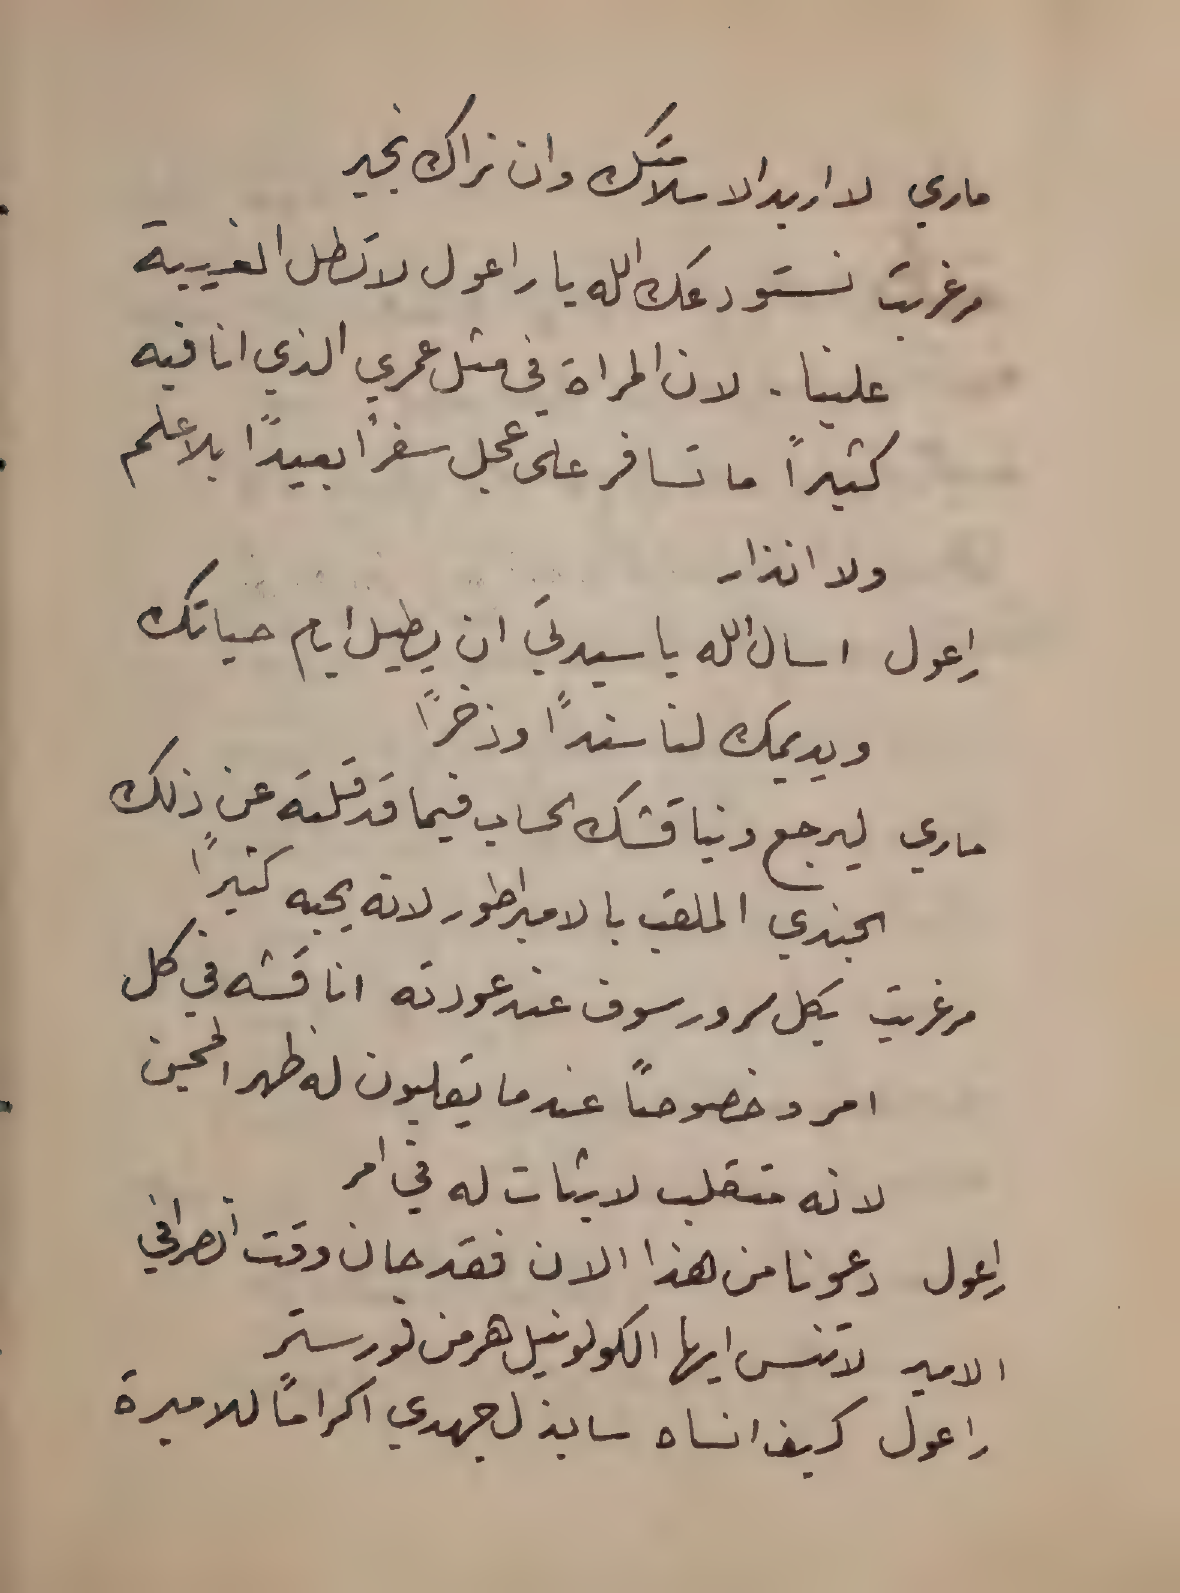 ماري لا اريد الا سلامتك وان نراك بخير
مرغريت نستودعك الله يا راعول لا تطل الغيبة
علينا . لان المراة في مثل عمري الذي انا فيه
كثيراً ما تسافر على عجل سفراً بعيداً بلا علم
ولا انذار
راعول اسال الله يا سيدتي ان يطيل ايام حياتك
ويديمك لنا سنداً وذخراً
ماري ليرجع ويناقشك الحساب فيما قد قلته عن ذلك
الجندي الملقب بالامبراطور لانه يحبه كثيراً
مرغريت بكل سرور سوف عند عودته اناقشه في كل
امر وخصوصاً عندما يقلبون له ظهر المجن
لانه متقلب لا ثبات له في امر
راعول دعونا من هذا الان فقد حان وقت انصرافي
الامير لا تنس ايها الكولونيل هرمن فورستر
راعول كيف انساه سابذل جهدي اكراماً للاميرة